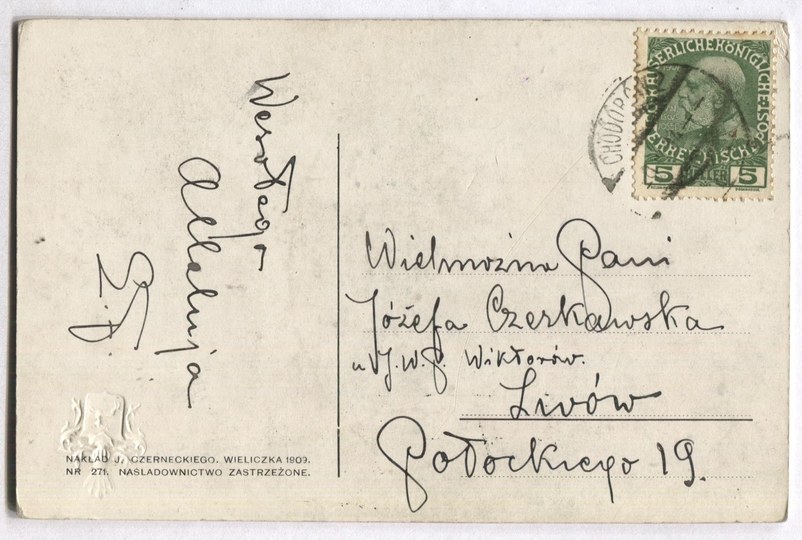 Wesołego
Alleluja
Wielmożna Pani
Józefa Czerkawska
u J.W.P. Wiktorów.
Lwów
Potockiego 19.
NAKŁAD J. CZERNECKIEGO. WIELICZKA 1909.
NR 271. NAŚLADOWNICTWO ZASTRZEŻONE.
KAISERLICHE KÖNIGLICHE ÖSTERREICHISCHE POST
5 HELLER 5
CHODORÓW